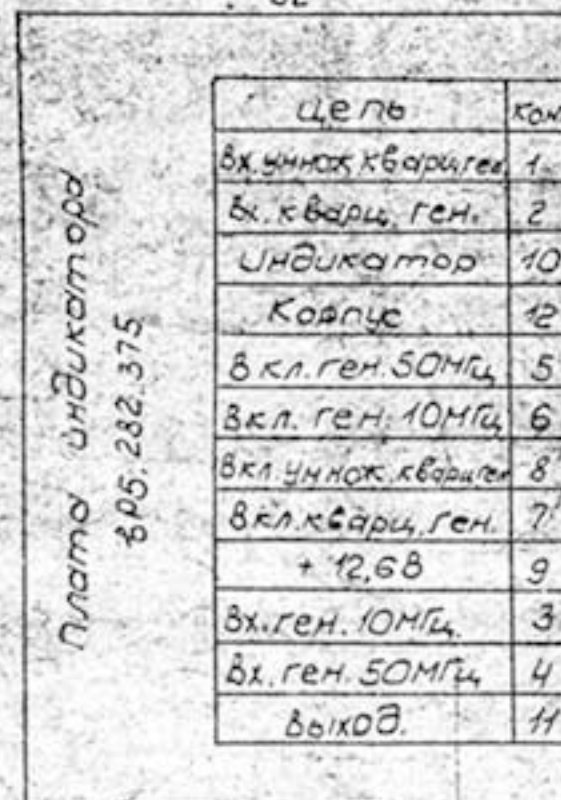 Плата индикатора
вР5.282.375
Цепь Кон.
Вх. умнож. кварц. ген. 1
Вх. кварц. ген. 2
Индикатор 10
Корпус 12
Вкл. ген. 50МГц 5
Вкл. ген. 10МГц 6
Вкл. умнож. кварц. ген 8
Вкл. кварц. ген. 7
+ 12,6В 9
Вх. ген. 10МГц. 3
Вх. ген. 50МГц 4
Выход. 11